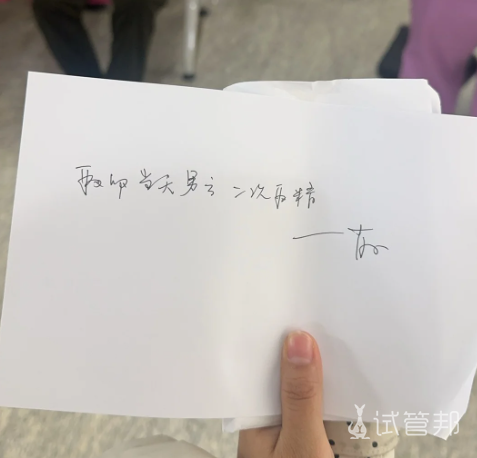 取卵当天男方二次取精
试管邦